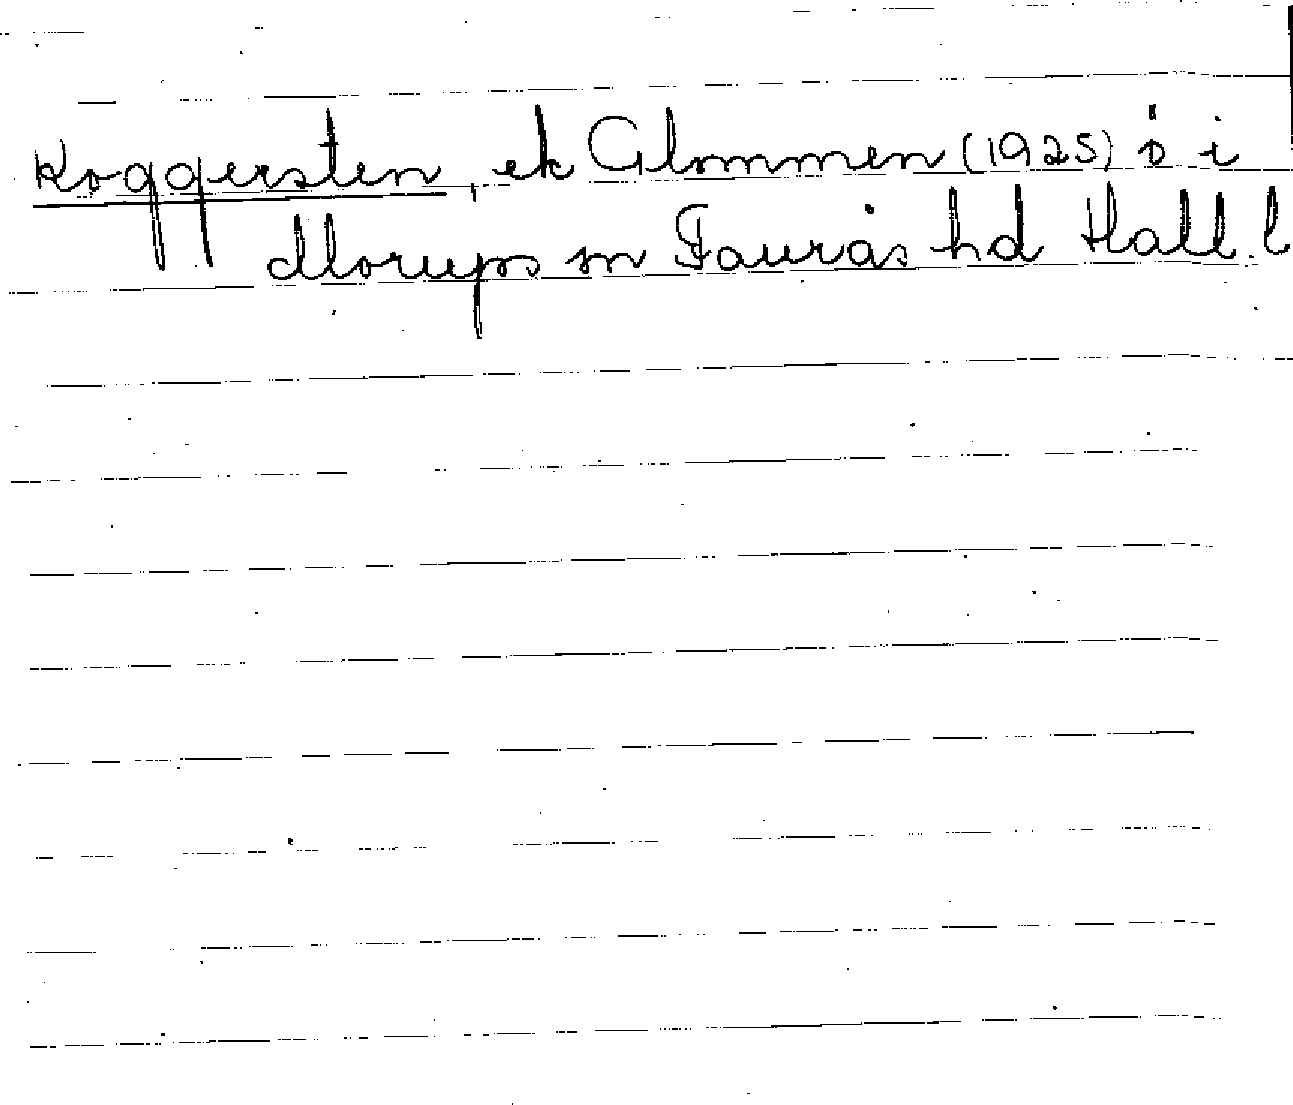 Koggersten, ek Glommen (1925) ö i
Morups sn Faurås hd Hall. l